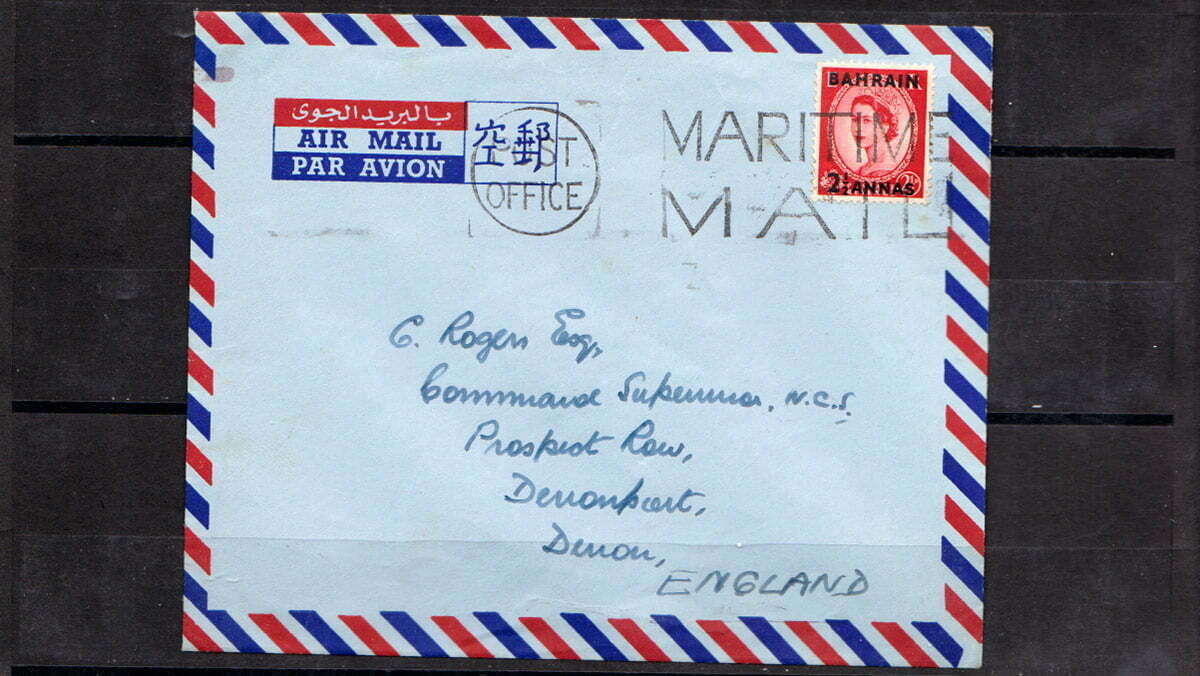 بالبريد الجوى
AIR MAIL
PAR AVION
空郵
POST
OFFICE
MARITIME
MAIL
BAHRAIN
2½ ANNAS
G. Rogers Esq,
Command Supervisor, N.C.S.
Prospect Row,
Devonport,
Devon,
ENGLAND